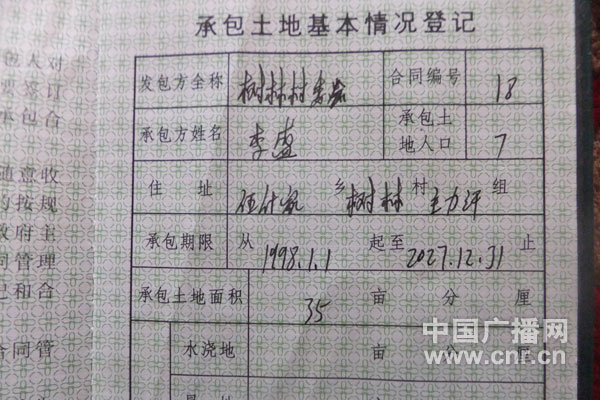 承包土地基本情况登记
发包方全称 树林村委会 合同编号 18
承包方姓名 李盛 承包土地人口 7
住址 伍什家 乡 树林 村 组
承包期限 从 1998.1.1 起至 2027.12.31 止
承包土地面积 35 亩 分 厘
水浇地 亩 分 厘
包人对
要签订
承包合
随意收
的按规
政府主
同管理
记和合
合同管
中国广播网
www.cnr.cn